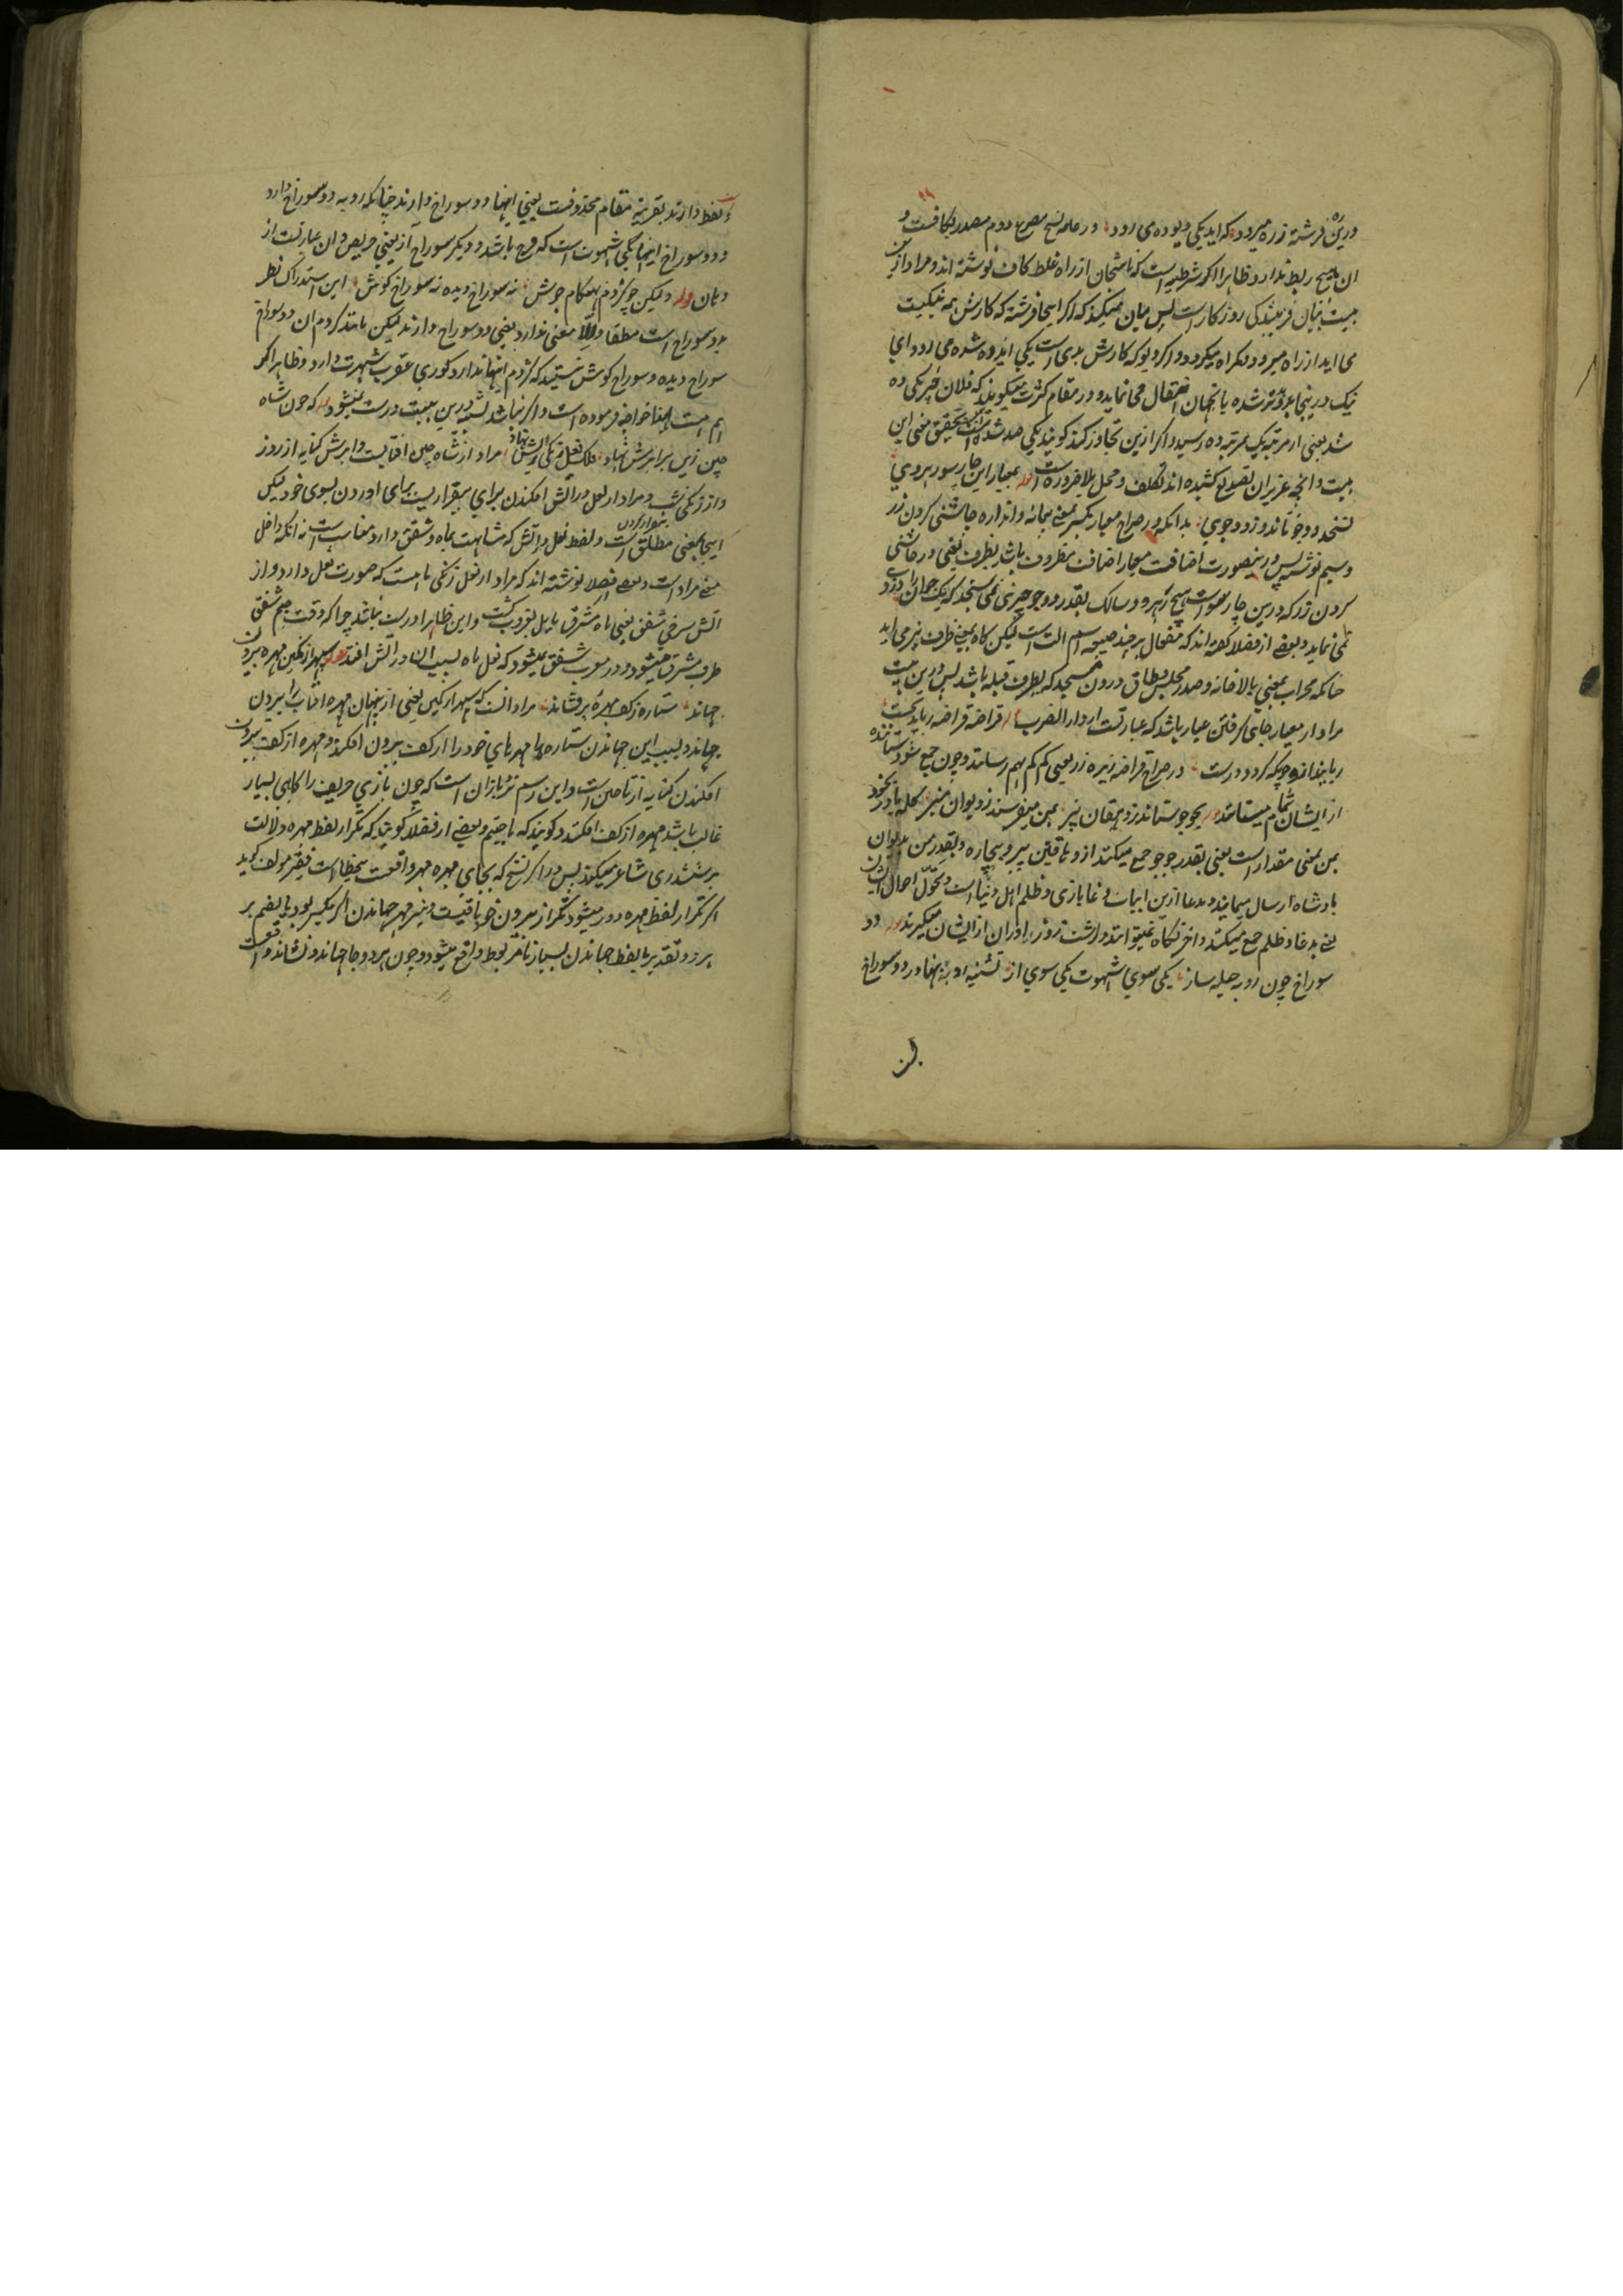 درین ره فرشته زره میرود که اید یکی دیو ده می رود در علمه نسخ مصرع دوم مصدر بکافست و
ان هیچ ربط ندارد ظاهرا اگر شرطیه است که ناسخان از راه غلط کاف نوشته اند و مراد ازین
بیت بیان فریبندگی روزگار است پس بیان میکند که اگر اینجا فرشته که کارش همه نیکیست
می اید از راه میرود و گمراه میگردد و اگر دیو که کارش بدی است یکی اید ده شده می رود ای
نیک درینجا بد و بدتر شده یا بجهان انتقال می نماید و در مقام کثرت میگویند که فلان خبر یکی ده
شد یعنی از مرتبه یک بمرتبه ده رسید و اگر ازین تجاوز کند گویند یکی صد شد اینست تحقیق معنی این
بیت و انچه عزیزان تصدیع کشیده اند تکلف و محل بلا ضرورت است قوله بمعیار این چار سو رهروی
نسنجد دو جو تا ندزدد جوی بدانکه در صراح معیار بکسر بمعنی پیمانه و اندازه چاشنی کردن زر
و سیم نوشته پس درینصورت اضافت معیار اضافت مظروف باشد بظرف یعنی در چاشنی
کردن زر که درین چار سو است هیچ رهرو و سالک بقدر دو جو چیزی نمی سنجد که یک جو از ان دزدی
نمی نماید و بعضی از فضلا گفته اند که مفعال هر چند صیغه اسم الت است لیکن گاه بمعنی ظرف نیز می اید
چنانکه محراب بمعنی بالاخانه و صدر مجلس و طاق درون مسجد که بطرف قبله باشد پس درین بیت
مراد از معیار جای گرفتن عیار باشد که عبارتست از دار الضرب قوله قراضه قراضه رباید نخست
رباینده چونکه گردد درست در صراح قراضه ریزه زر یعنی کم کم بهم رسانند و چون جمع شود ستاننده
از ایشان تمام میستاند قوله بجو جو ستانند ز دهقان پیر بمن من فرستند ز دیوان میر کله یا در بخود
بمن بمعنی مقدار است یعنی بقدر جو جو جمع میکنند از دهاقین پیر و بیچاره و بقدر من من بدیوان
بادشاه ارسال مینمایند و مدعا ازین ابیات دغا بازی و ظلم اهل دنیا است و تحول احوال ایشان
یعنی بدغا و ظلم جمع میکنند و اخر نگاه نمیتوانند داشت زوراوران از ایشان میگیرند قوله دو
سوراخ چون روبه حیله ساز یکی سوی شهوت یکی سوی از تشنیه او بتنهادر دو سوراخ
لفظ دارند بقرینه مقام محذوفست یعنی اینها دو سوراخ دارند چنانکه روبه دو سوراخ دارد
و دو سوراخ اینها یکی شهوت است که فرج باشد و دیگر سوراخ از یعنی حریص و ان عبارتست از
دهان قوله و لیکن چو کژدم بهنگام جوش نه سوراخ دیده نه سوراخ گوش این استدراک نظر
بدو سوراخ است مطلقا و الا معنی ندارد یعنی دو سوراخ دارند لیکن مانند کژدم ان دو سوراخ
سوراخ دیده و سوراخ گوش نیستند که کژدم اینها ندارد کوری عقرب شهرت دارد و ظاهرا کر
هم هست لهذا خواجه فرموده است و اگر نباشد تشبیه درین بیت درست نمیشود قوله که چون شاه
چین زین بر ابرش نهاد فلک نعل زنگی بر اتش نهاد مراد از شاه چین افتابست و ابرش کنایه از روز
و از زنگی شب و مراد از نعل در اتش افکندن برای بیقراریست برای اوردن بسوی خود لیکن
اینجا بمعنی مطلق بیقرار کردن است و لفظ نعل و اتش که مشابهت بماه و شفق دارد مناسب است نه انکه داخل
معنی مراد است و بعضی فضلا نوشته اند که مراد از نعل زنگی ماه است که صورت نعل دارد و از
اتش سرخی شفق یعنی ماه مشرق مایل بغروب گشت و این ظاهرا درست نباشد چرا که وقت صبح شفق
طرف مشرق میشود و در مغرب شفق نمیشود که نعل ماه بسبب ان در اتش افتد قوله سپهر از کمین مهره بیرون
جهاند ستاره زکف مهره بر فشاند مراد انست که سپهر از کمین یعنی از پنهان مهره افتاب را بیرون
جهاند و بسبب این جهاندن ستاره ها مهرهای خود را از کف بیرون افکند و مهره از کف بیرون
افکندن کنایه از باختن است و این رسم نرد بازان است که چون بازی حریف را گاهی بسیار
غالب باشد مهره از کف افکند و گویند که باختیم و بعضی از فضلا گویند که تکرار لفظ مهره دلالت
بر ششدری شاعر میکند پس در اکثر نسخ که بجای مهره مهر واقعست بیخطا است فقیر مولف گوید
اگر تکرار لفظ مهره دور میشود تکرار از بیرون خود باقیست و نیز مهر جهاندن اگر بکسر بود یا بضم بر
هر دو تقدیر با لفظ جهاندن بسیار نامربوط واقع میشود و چون هر دو جا جهاند و نشاند واقعست